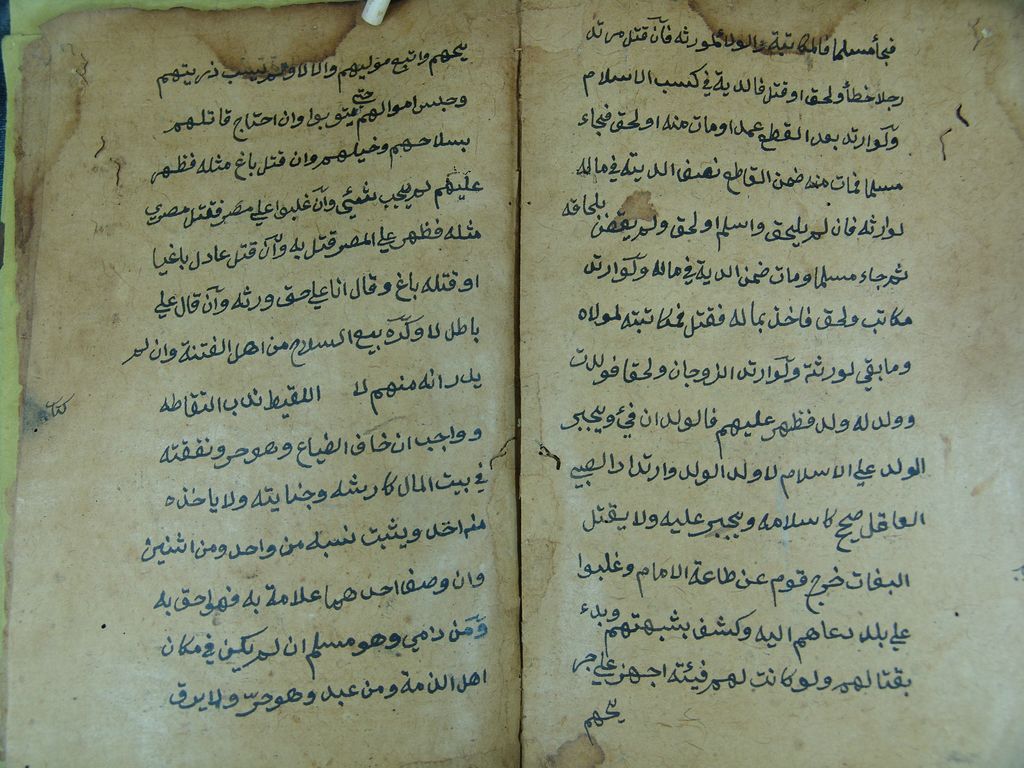 فجأ مسلما فالمكاتبة والولاء لمورثه فأن قتل مرتد
رجلا خطأ ولحق او قتل فالدية في كسب الاسلام
ولوارتد بعد القطع عمدا ومات منه او لحق فجاء
مسلما فمات منه ضمن القاطع نصف الدية في ماله
لوارثه فان لم يلحق واسلم او لحق ولم يقض بلحاقه
ثم جاء مسلما ومات ضمن الدية في ماله ولوارتد
مكاتب ولحق فاخذ بماله فقتل فمكاتبته لمولاه
ومابقي لورثته ولوارتد الزوجان ولحقا فولدت
وولد له ولد فظهر عليهم فالولدان فئ ويجبر
الولد علي الاسلام لا ولد الولد وارتداد الصبي
العاقل صح كاسلامه ويجبر عليه ولا يقتل
البغات خرج قوم عن طاعة الامام وغلبوا
علي بلد دعاهم اليه وكشف بشبهتهم وبدء
بقتالهم ولو كانت لهم فيئته اجهز علي جر
يحهم
يحهم واتبع موليهم والا لا ولم يسب ذريتهم
وحبس اموالهم حتي يتوبوا وان احتاج قاتلهم
بسلاحهم وخيلهم وان قتل باغ مثله فظهر
عليهم لم يجب شئي وأن غلبوا علي مصر فقتل مصري
مثله فظهر علي المصر قتل به وأن قتل عادل باغيا
او قتله باغ وقال انا علي حق ورثه وأن قال علي
باطل لا وكره بيع السلاح من اهل الفتنة وان لم
يدر انه منهم لا اللقيط ندب التقاطه
وواجب ان خاف الضياع وهو حر ونفقته
في بيت المال كارثه وجنايته ولا ياخذه
منه احد ويثبت نسبه من واحد ومن اثنين
وان وصف احدهما علامة به فهو احق به
ومن ذمي وهو مسلم ان لم يكن في مكان
اهل الذمة ومن عبد وهو حر ولا يرق